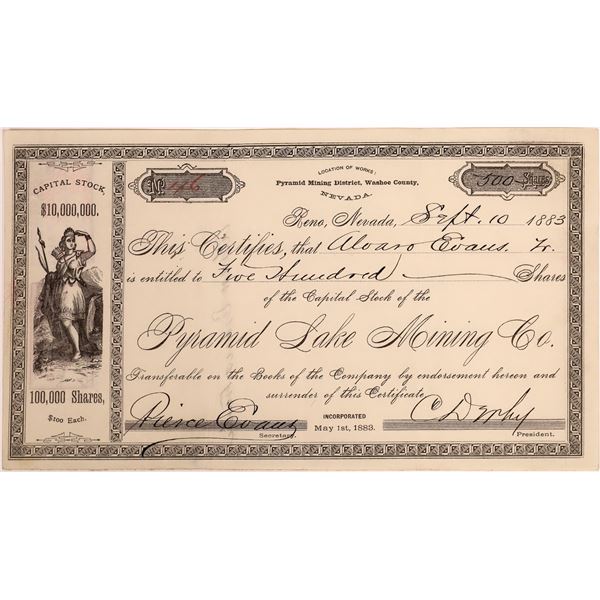 CAPITAL STOCK,
$10,000,000.
100,000 Shares,
$100 Each.
No. 46
LOCATION OF WORKS:
Pyramid Mining District, Washoe County,
NEVADA.
500 Shares
Reno, Nevada, Sept. 10 1883
This Certifies, that Alvaro Evans, Tr.
is entitled to Five Hundred Shares
of the Capital Stock of the
Pyramid Lake Mining Co.
Transferable on the Books of the Company by endorsement hereon and
surrender of this Certificate
Pierce Evans
Secretary.
INCORPORATED
May 1st, 1883.
C Derby
President.